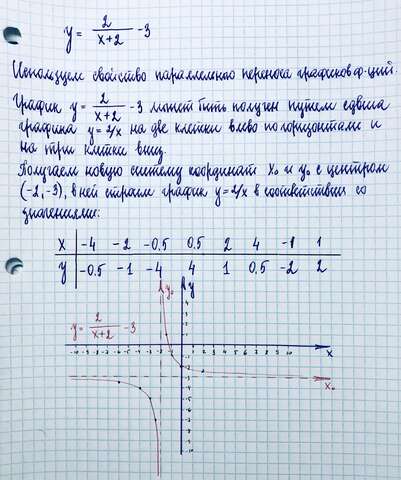 y = 2/(x+2) -3
Используем свойство параллельного переноса графиков ф-ций.
График y = 2/(x+2) -3 может быть получен путем сдвига
графика y = 2/x на две клетки влево по горизонтали и
на три клетки вниз.
Получаем новую систему координат x₀ и y₀ с центром
(-2, -3), в ней строим график y = 2/x в соответствии со
значениями:
x -4 -2 -0.5 0.5 2 4 -1 1
y -0.5 -1 -4 4 1 0.5 -2 2
y₀ y
y = 2/(x+2) -3
x
x₀